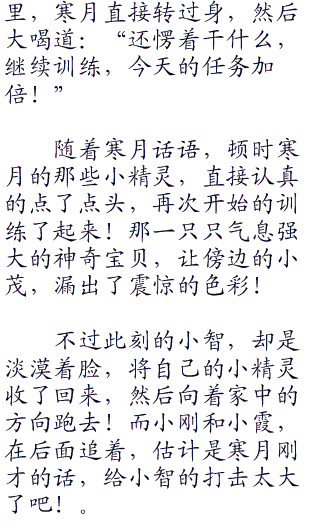 里，寒月直接转过身，然后
大喝道：“还愣着干什么，
继续训练，今天的任务加
倍！”
随着寒月话语，顿时寒
月的那些小精灵，直接认真
的点了点头，再次开始的训
练了起来！那一只只气息强
大的神奇宝贝，让傍边的小
茂，漏出了震惊的色彩！
不过此刻的小智，却是
淡漠着脸，将自己的小精灵
收了回来，然后向着家中的
方向跑去！而小刚和小霞，
在后面追着，估计是寒月刚
才的话，给小智的打击太大
了吧！。